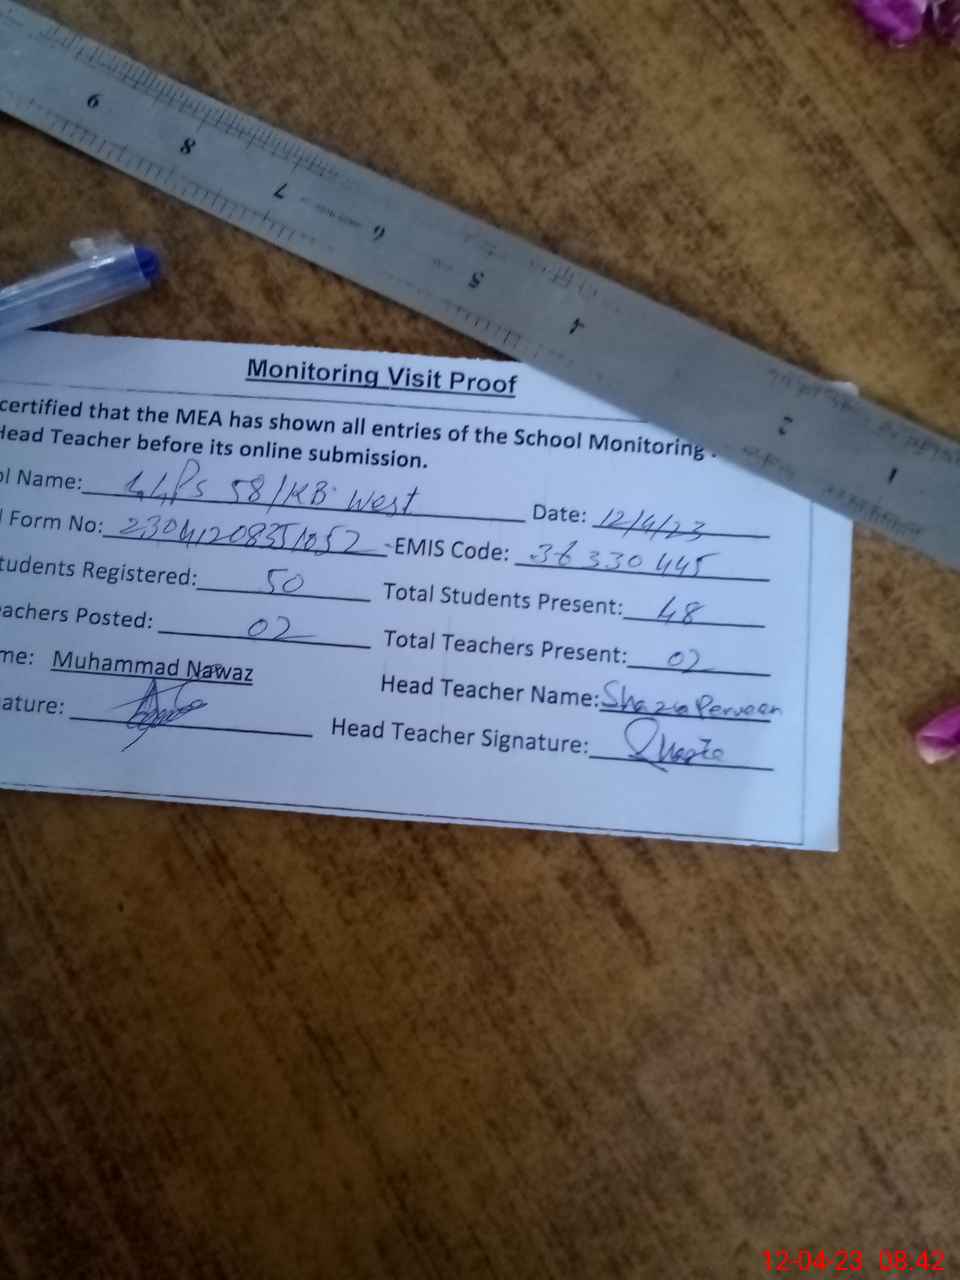 9 8 7 6 5 4 2 1
Monitoring Visit Proof
certified that the MEA has shown all entries of the School Monitoring
Head Teacher before its online submission.
ol Name: 58/KB West Date: 12/4/23
l Form No: EMIS Code: 36330445
tudents Registered: 50 Total Students Present: 48
eachers Posted: 02 Total Teachers Present: 02
me: Muhammad Nawaz Head Teacher Name: Shazia Perveen
ature: Head Teacher Signature: Shazia
12-04-23 08:42